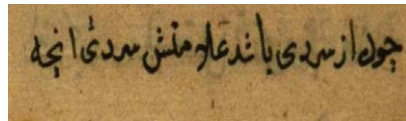 چون از سردی باشد علامتش سردئ انچه